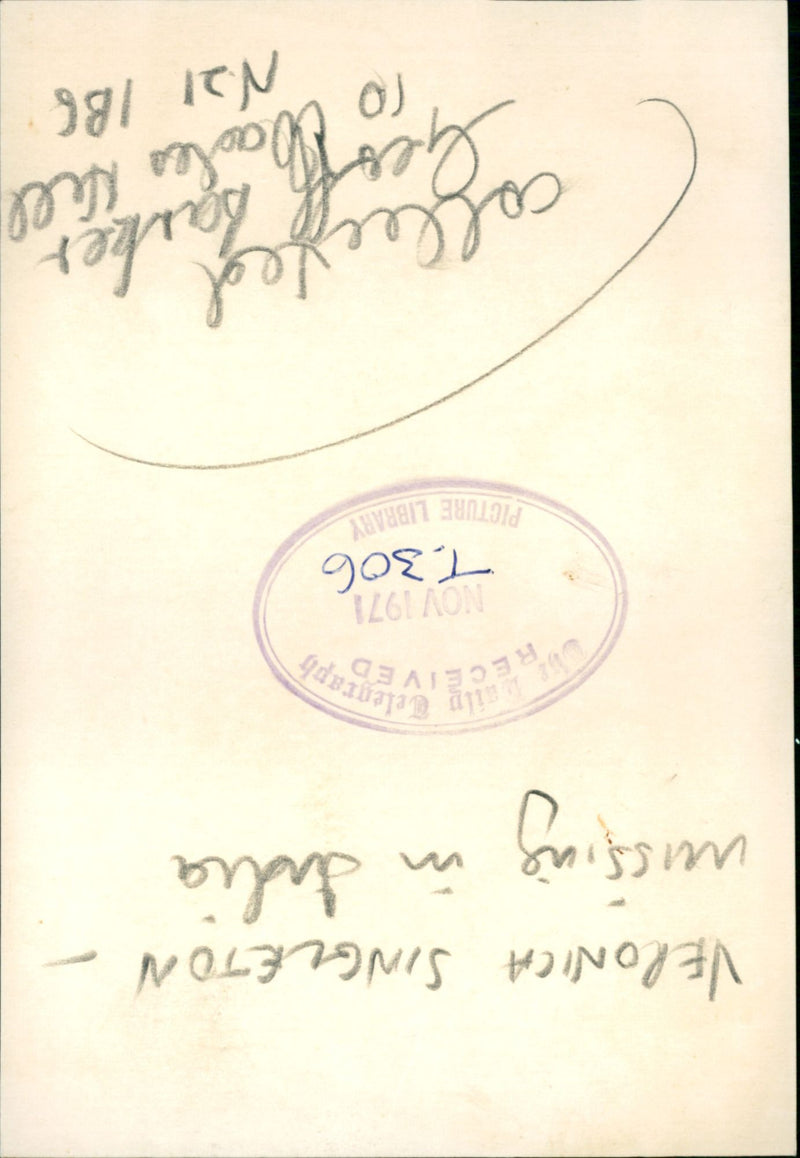 VERONICA SINGLETON —
missing in India
The Daily Telegraph
RECEIVED
NOV 1971
T.306
PICTURE LIBRARY
collected
Geoff Barker
10 Hill
N21 1BG